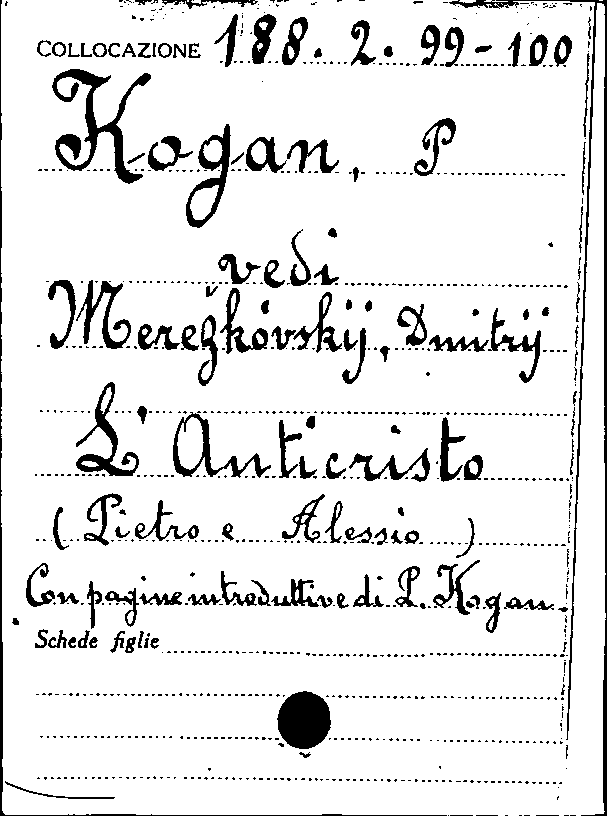 COLLOCAZIONE 188. 2. 99-100
Kogan, P
vedi
Merežkóvskij, Dmitrij
L'Anticristo
(Pietro e Alessio)
Con pagine introduttive di P. Kogan.
Schede figlie